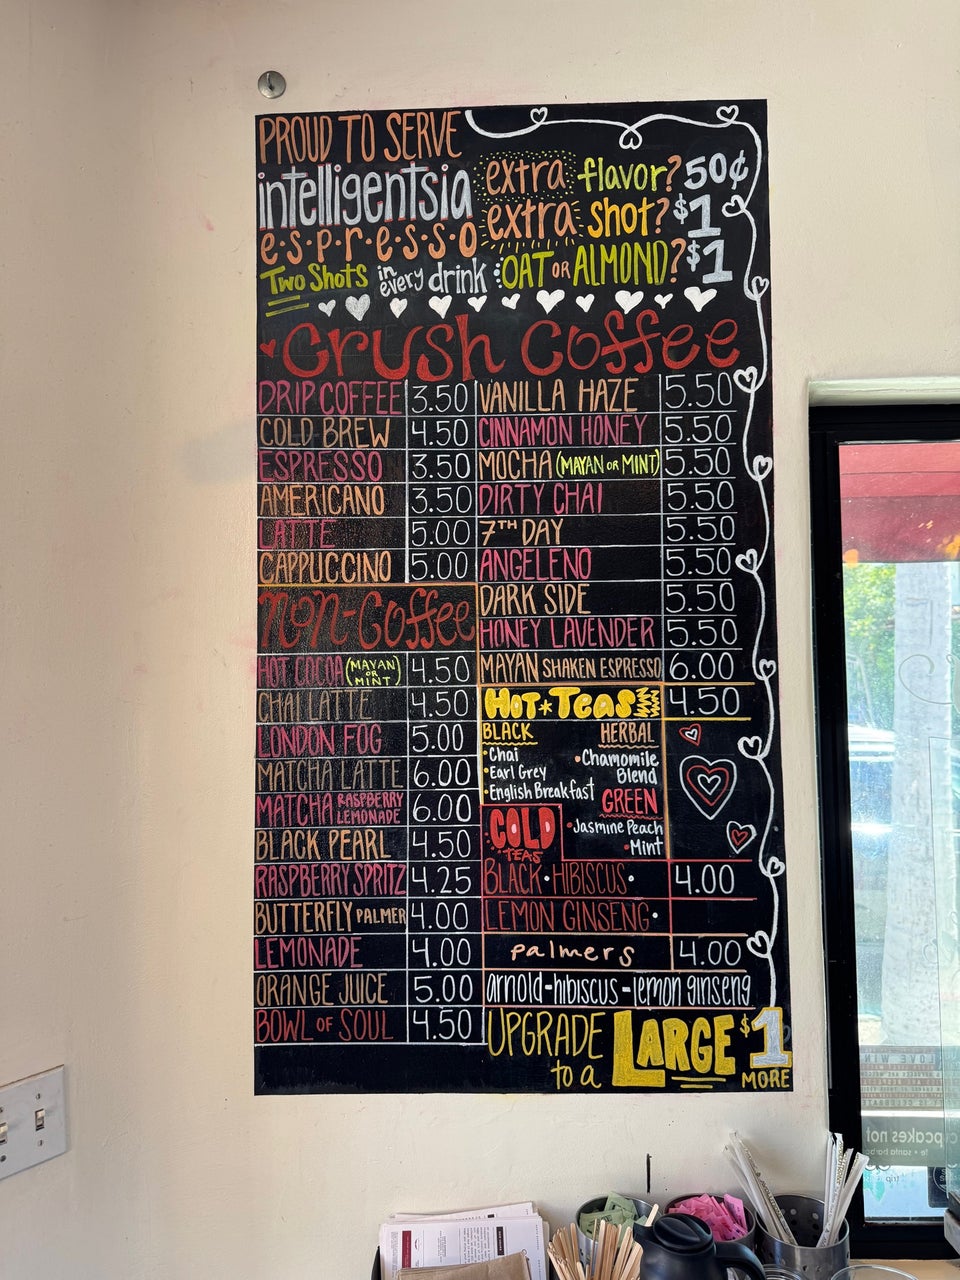 PROUD TO SERVE
intelligentsia
e·s·p·r·e·s·s·o
Two Shots in every drink
extra flavor? 50¢
extra shot? $1
OAT OR ALMOND? $1
Crush Coffee
DRIP COFFEE 3.50
COLD BREW 4.50
ESPRESSO 3.50
AMERICANO 3.50
LATTE 5.00
CAPPUCCINO 5.00
Non-Coffee
HOT COCOA (MAYAN OR MINT) 4.50
CHAI LATTE 4.50
LONDON FOG 5.00
MATCHA LATTE 6.00
MATCHA RASPBERRY LEMONADE 6.00
BLACK PEARL 4.50
RASPBERRY SPRITZ 4.25
BUTTERFLY PALMER 4.00
LEMONADE 4.00
ORANGE JUICE 5.00
BOWL OF SOUL 4.50
VANILLA HAZE 5.50
CINNAMON HONEY 5.50
MOCHA (MAYAN OR MINT) 5.50
DIRTY CHAI 5.50
7TH DAY 5.50
ANGELENO 5.50
DARK SIDE 5.50
HONEY LAVENDER 5.50
MAYAN SHAKEN ESPRESSO 6.00
HOT * TEAS 4.50
BLACK
• Chai
• Earl Grey
• English Breakfast
HERBAL
• Chamomile
Blend
GREEN
• Jasmine Peach
• Mint
COLD
TEAS
BLACK • HIBISCUS • 4.00
LEMON GINSENG •
palmers 4.00
arnold-hibiscus-lemon ginseng
UPGRADE
to a LARGE $1
MORE
LOVE WIN
cupcakes not